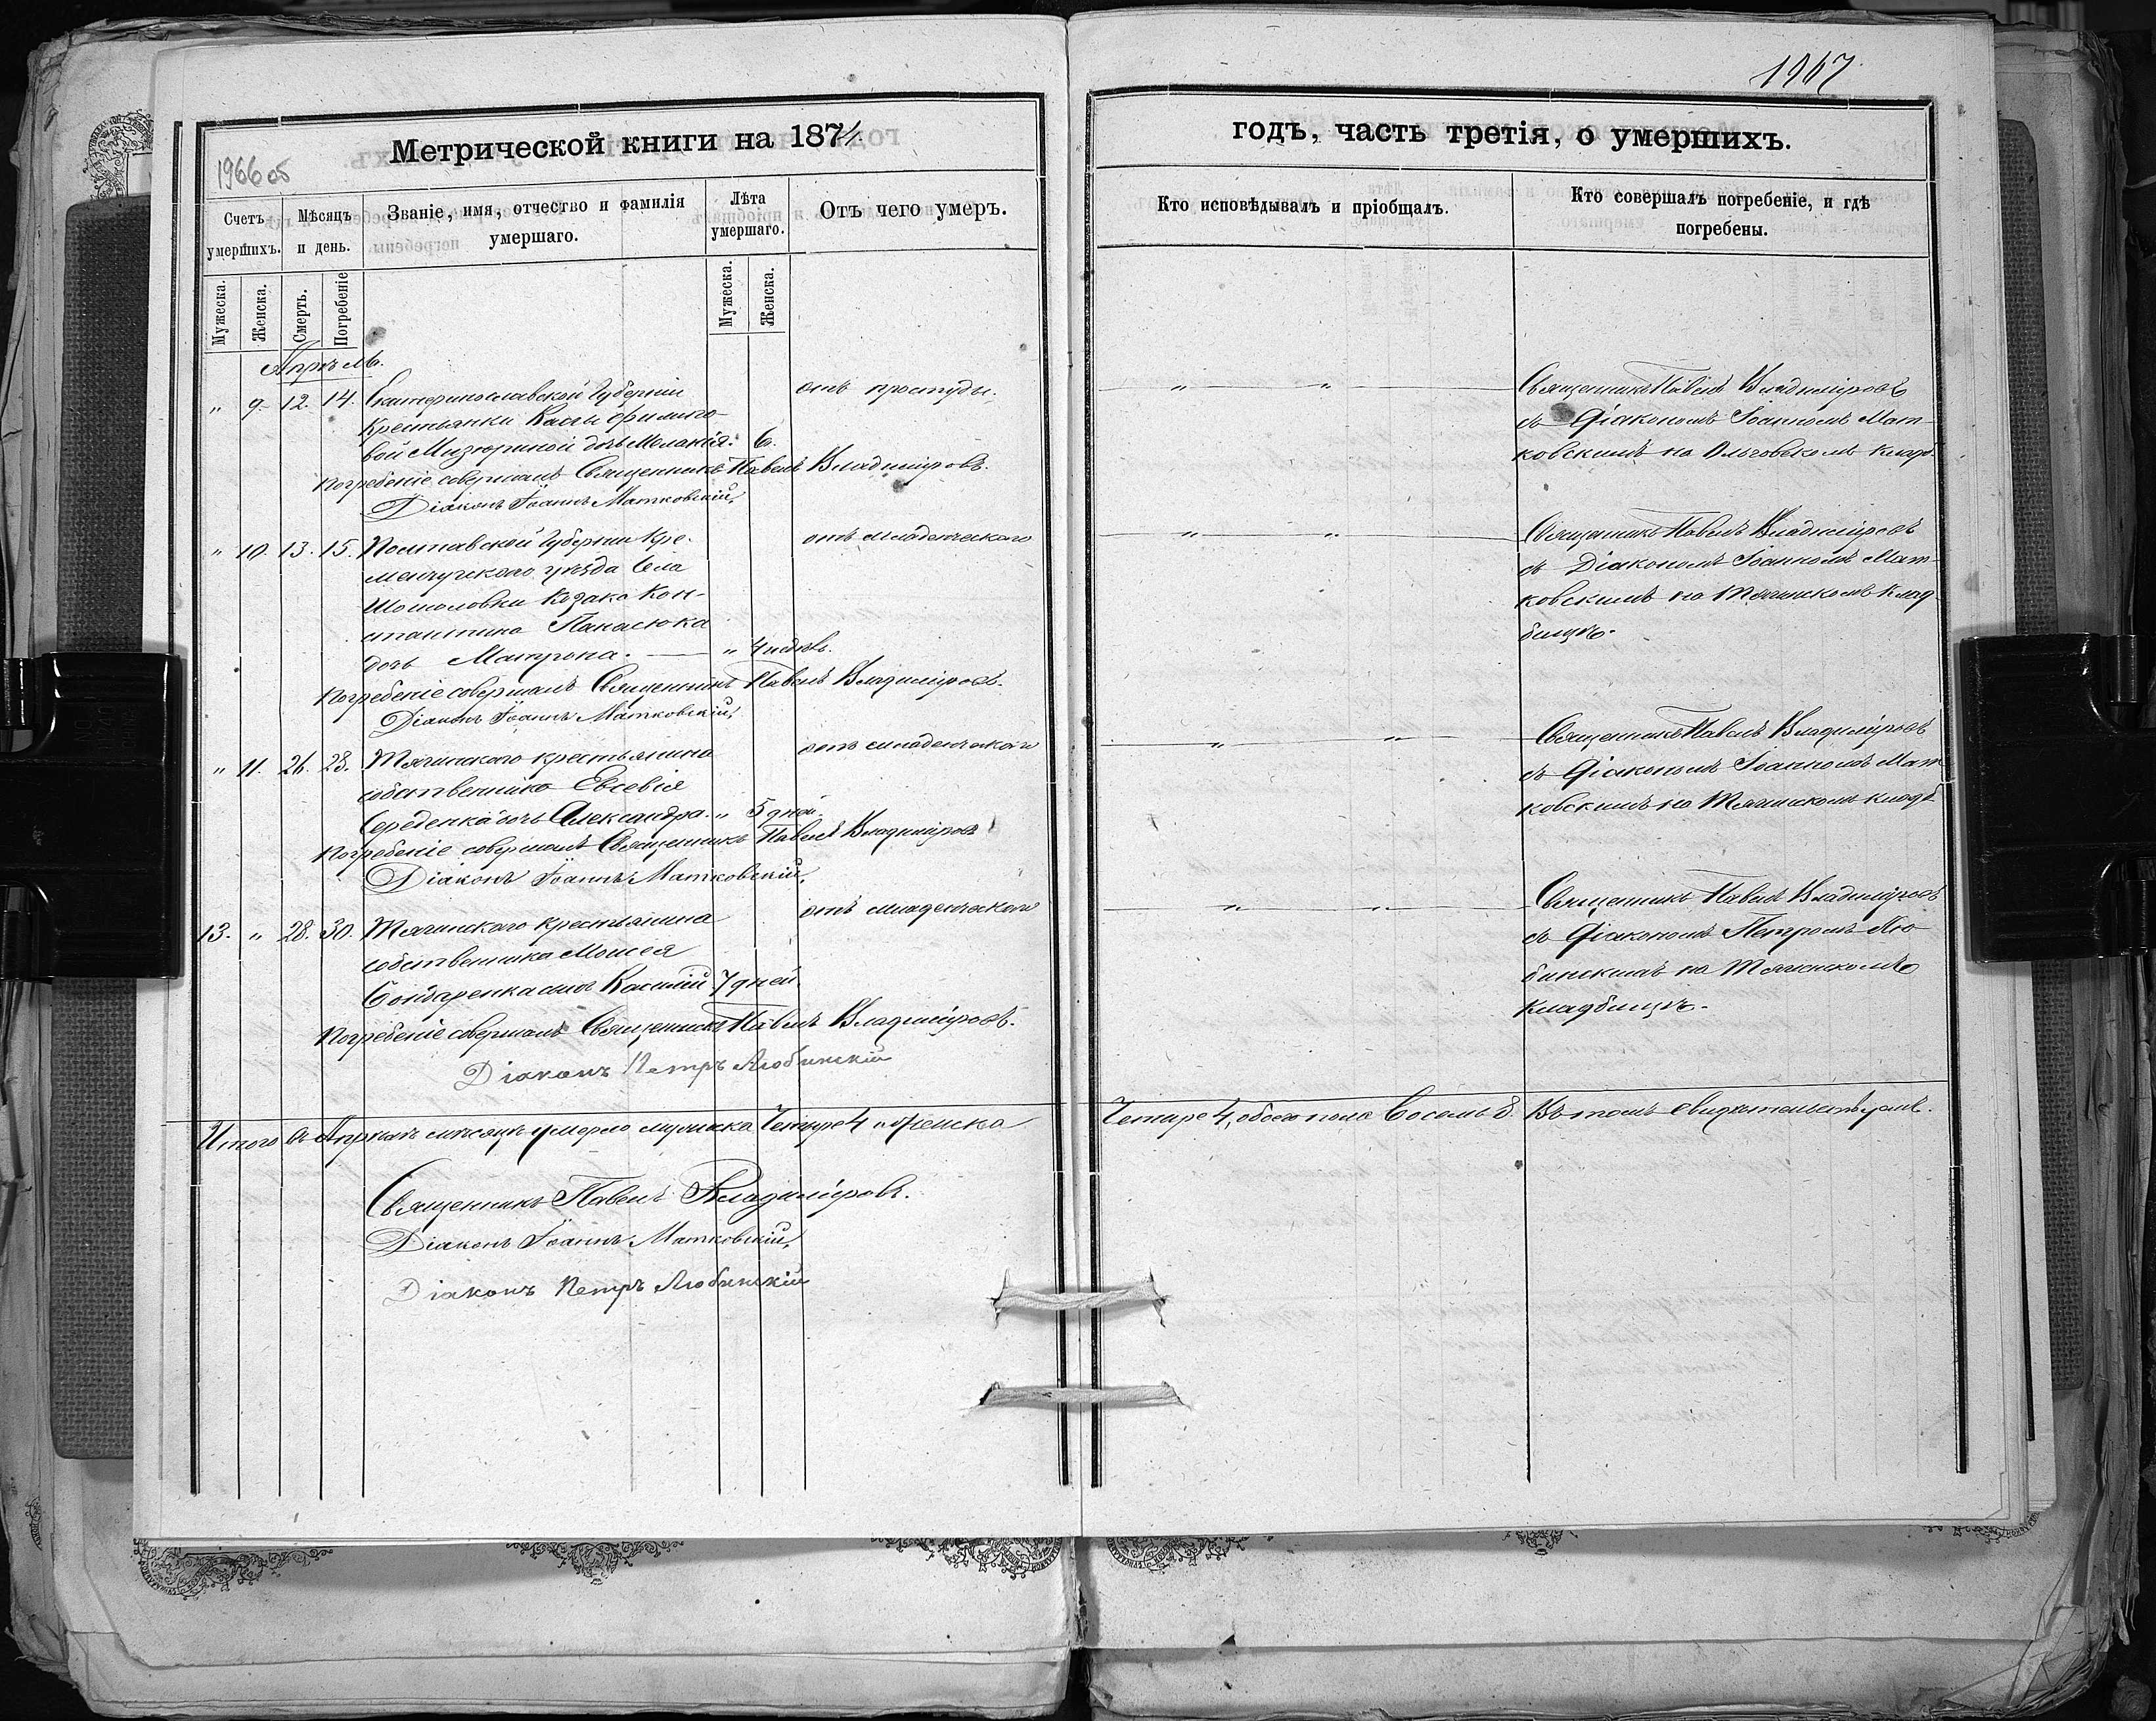 1967
1966 об
Метрической книги на 1874
годъ, часть третія, о умершихъ.
Счетъ умершихъ.
Мѣсяцъ и день.
Званіе, имя, отчество и фамилія умершаго.
Лѣта умершаго.
Отъ чего умеръ.
Кто исповѣдывалъ и пріобщалъ.
Кто совершалъ погребеніе, и гдѣ погребены.
Мужеска.
Женска.
Смерть.
Погребеніе
Мужеска.
Женска.
Апрѣль.
„ 9. 12. 14. Екатеринославской Губерніи
крестьянки Вассы Филипо-
вой Мизюриной дочь Меланія. 6.
отъ простуды.
„ „
Священникъ Павелъ Владиміровъ
съ Діакономъ Іоанномъ Мат-
ковскимъ на Ольговскомъ кладб.
Погребеніе совершалъ Священникъ Павелъ Владиміровъ.
Діаконъ Іоаннъ Матковскій.
„ 10. 13. 15. Полтавской Губерніи Кре-
менчугскаго уѣзда села
козака Кон-
стантина Панасюка
дочь Матрона. „ 4 недѣль.
отъ младенческаго
„ „
Священникъ Павелъ Владиміровъ
съ Діакономъ Іоанномъ Мат-
ковскимъ на Тягинскомъ клад-
бищѣ.
Погребеніе совершалъ Священникъ Павелъ Владиміровъ.
Діаконъ Іоаннъ Матковскій.
„ 11. 26. 28. Тягинскаго крестьянина
собственника Евсевія
Середенка дочь Александра. „ 5 дней.
отъ младенческаго
„ „
Священникъ Павелъ Владиміровъ
съ Діакономъ Іоанномъ Мат
ковскимъ на Тягинскомъ кладб
Погребеніе совершалъ Священникъ Павелъ Владиміровъ
Діаконъ Іоаннъ Матковскій.
13. „ 28. 30. Тягинскаго крестьянина
собственника Моисея
Бондаренка сынъ Василій 7 дней.
отъ младенческаго
„ „
Священникъ Павелъ Владиміровъ
съ Діакономъ Петромъ Лю
бинскимъ на Тягинскомъ
кладбищѣ.
Погребеніе совершалъ Священникъ Павелъ Владиміровъ.
Діаконъ Петръ Любинскій
Итого въ Апрѣлѣ мѣсяцѣ умерло мужеска Четыре 4 и женска
Четыре 4, обоего пола Восемь 8. Въ томъ свидѣтельствуемъ.
Священникъ Павелъ Владиміровъ.
Діаконъ Іоаннъ Матковскій.
Діаконъ Петръ Любинскій